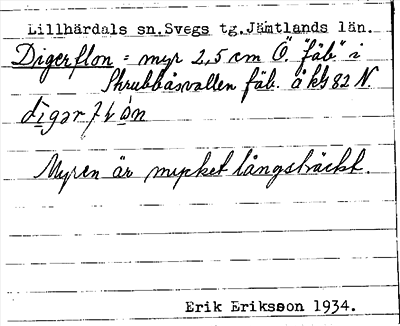 Lillhärdals sn. Svegs tg. Jämtlands län.
Digerflon = myr 2,5 cm Ö. "fäb" i
Skrubbåsvallen fäb. å kbl 82 N.
Myren är mycket långsträckt.
Erik Eriksson 1934.